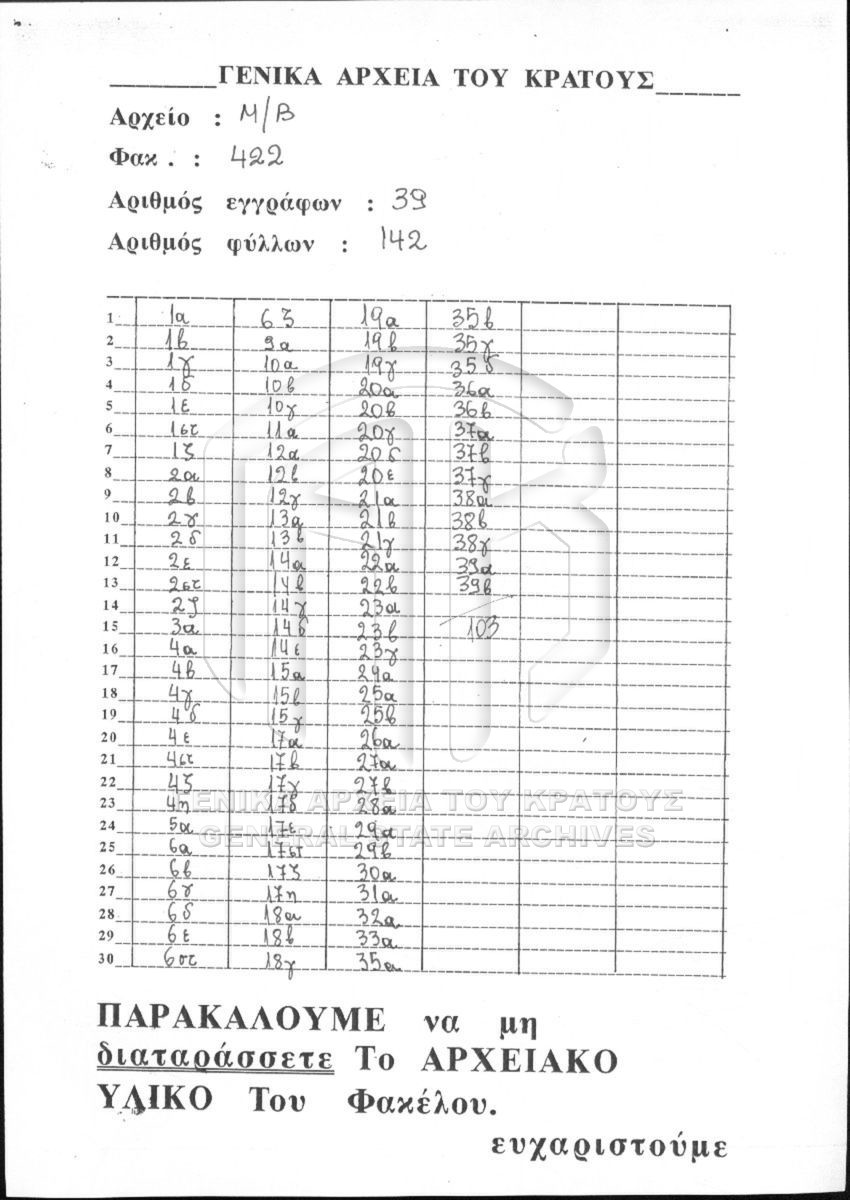 ΓΕΝΙΚΑ ΑΡΧΕΙΑ ΤΟΥ ΚΡΑΤΟΥΣ
Αρχείο : Μ/Β
Φακ . : 422
Αριθμός εγγράφων : 39
Αριθμός φύλλων : 142
1 1α 6ζ 19α 35β
2 1β 9α 19β 35γ
3 1γ 10α 19γ 35δ
4 1δ 10β 20α 36α
5 1ε 10γ 20β 36β
6 1στ 11α 20γ 37α
7 1ζ 12α 20δ 37β
8 2α 12β 20ε 37γ
9 2β 12γ 21α 38α
10 2γ 13α 21β 38β
11 2δ 13β 21γ 38γ
12 2ε 14α 22α 39α
13 2στ 14β 22β 39β
14 2ζ 14γ 23α
15 3α 14δ 23β 103
16 4α 14ε 23γ
17 4β 15α 24α
18 4γ 15β 25α
19 4δ 15γ 25β
20 4ε 17α 26α
21 4στ 17β 27α
22 4ζ 17γ 27β
23 4η 17δ 28α
24 5α 17ε 29α
25 6α 17στ 29β
26 6β 17ζ 30α
27 6γ 17η 31α
28 6δ 18α 32α
29 6ε 18β 33α
30 6στ 18γ 35α
ΓΕΝΙΚΑ ΑΡΧΕΙΑ ΤΟΥ ΚΡΑΤΟΥΣ
GENERAL STATE ARCHIVES
ΠΑΡΑΚΑΛΟΥΜΕ να μη
διαταράσσετε Το ΑΡΧΕΙΑΚΟ
ΥΛΙΚΟ Του Φακέλου.
ευχαριστούμε